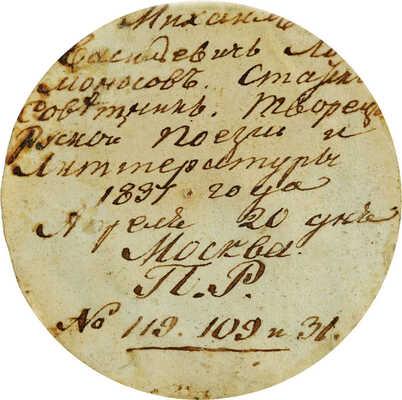 Михаилъ
Васильевичь Ло
моносовъ. Статск
Совѣтникъ. Творец
Руской Поезіи и
Литтературы
1831 года
Апрель 20 днѣ
Москва.
П. Р.
№ 119. 109 и 31.